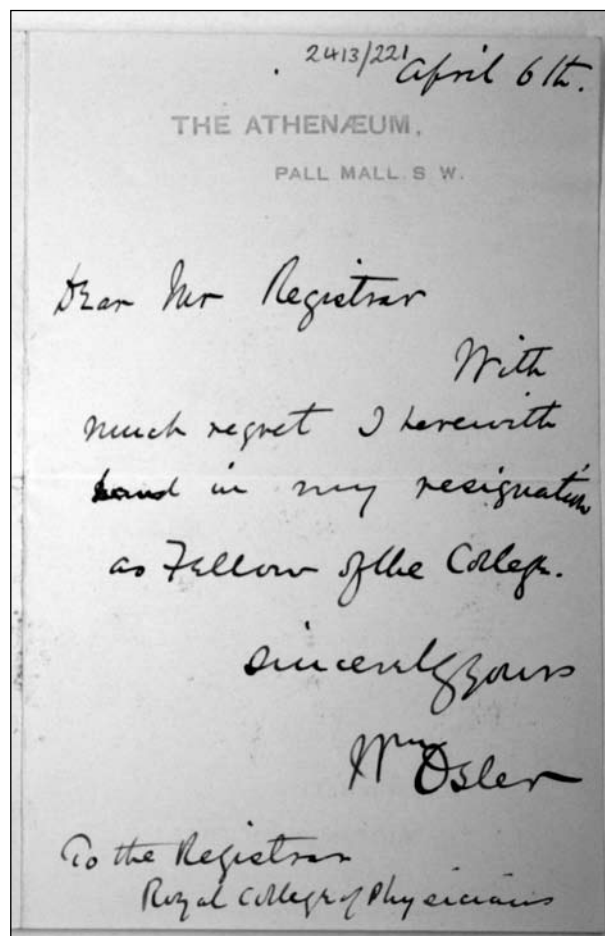 2413/221
April 6th.
THE ATHENÆUM,
PALL MALL. S W.
Dear Mr Registrar
With
much regret I herewith
hand in my resignation
as Fellow of the College.
Sincerely yours
Wm Osler
To the Registrar
Royal College of Physicians